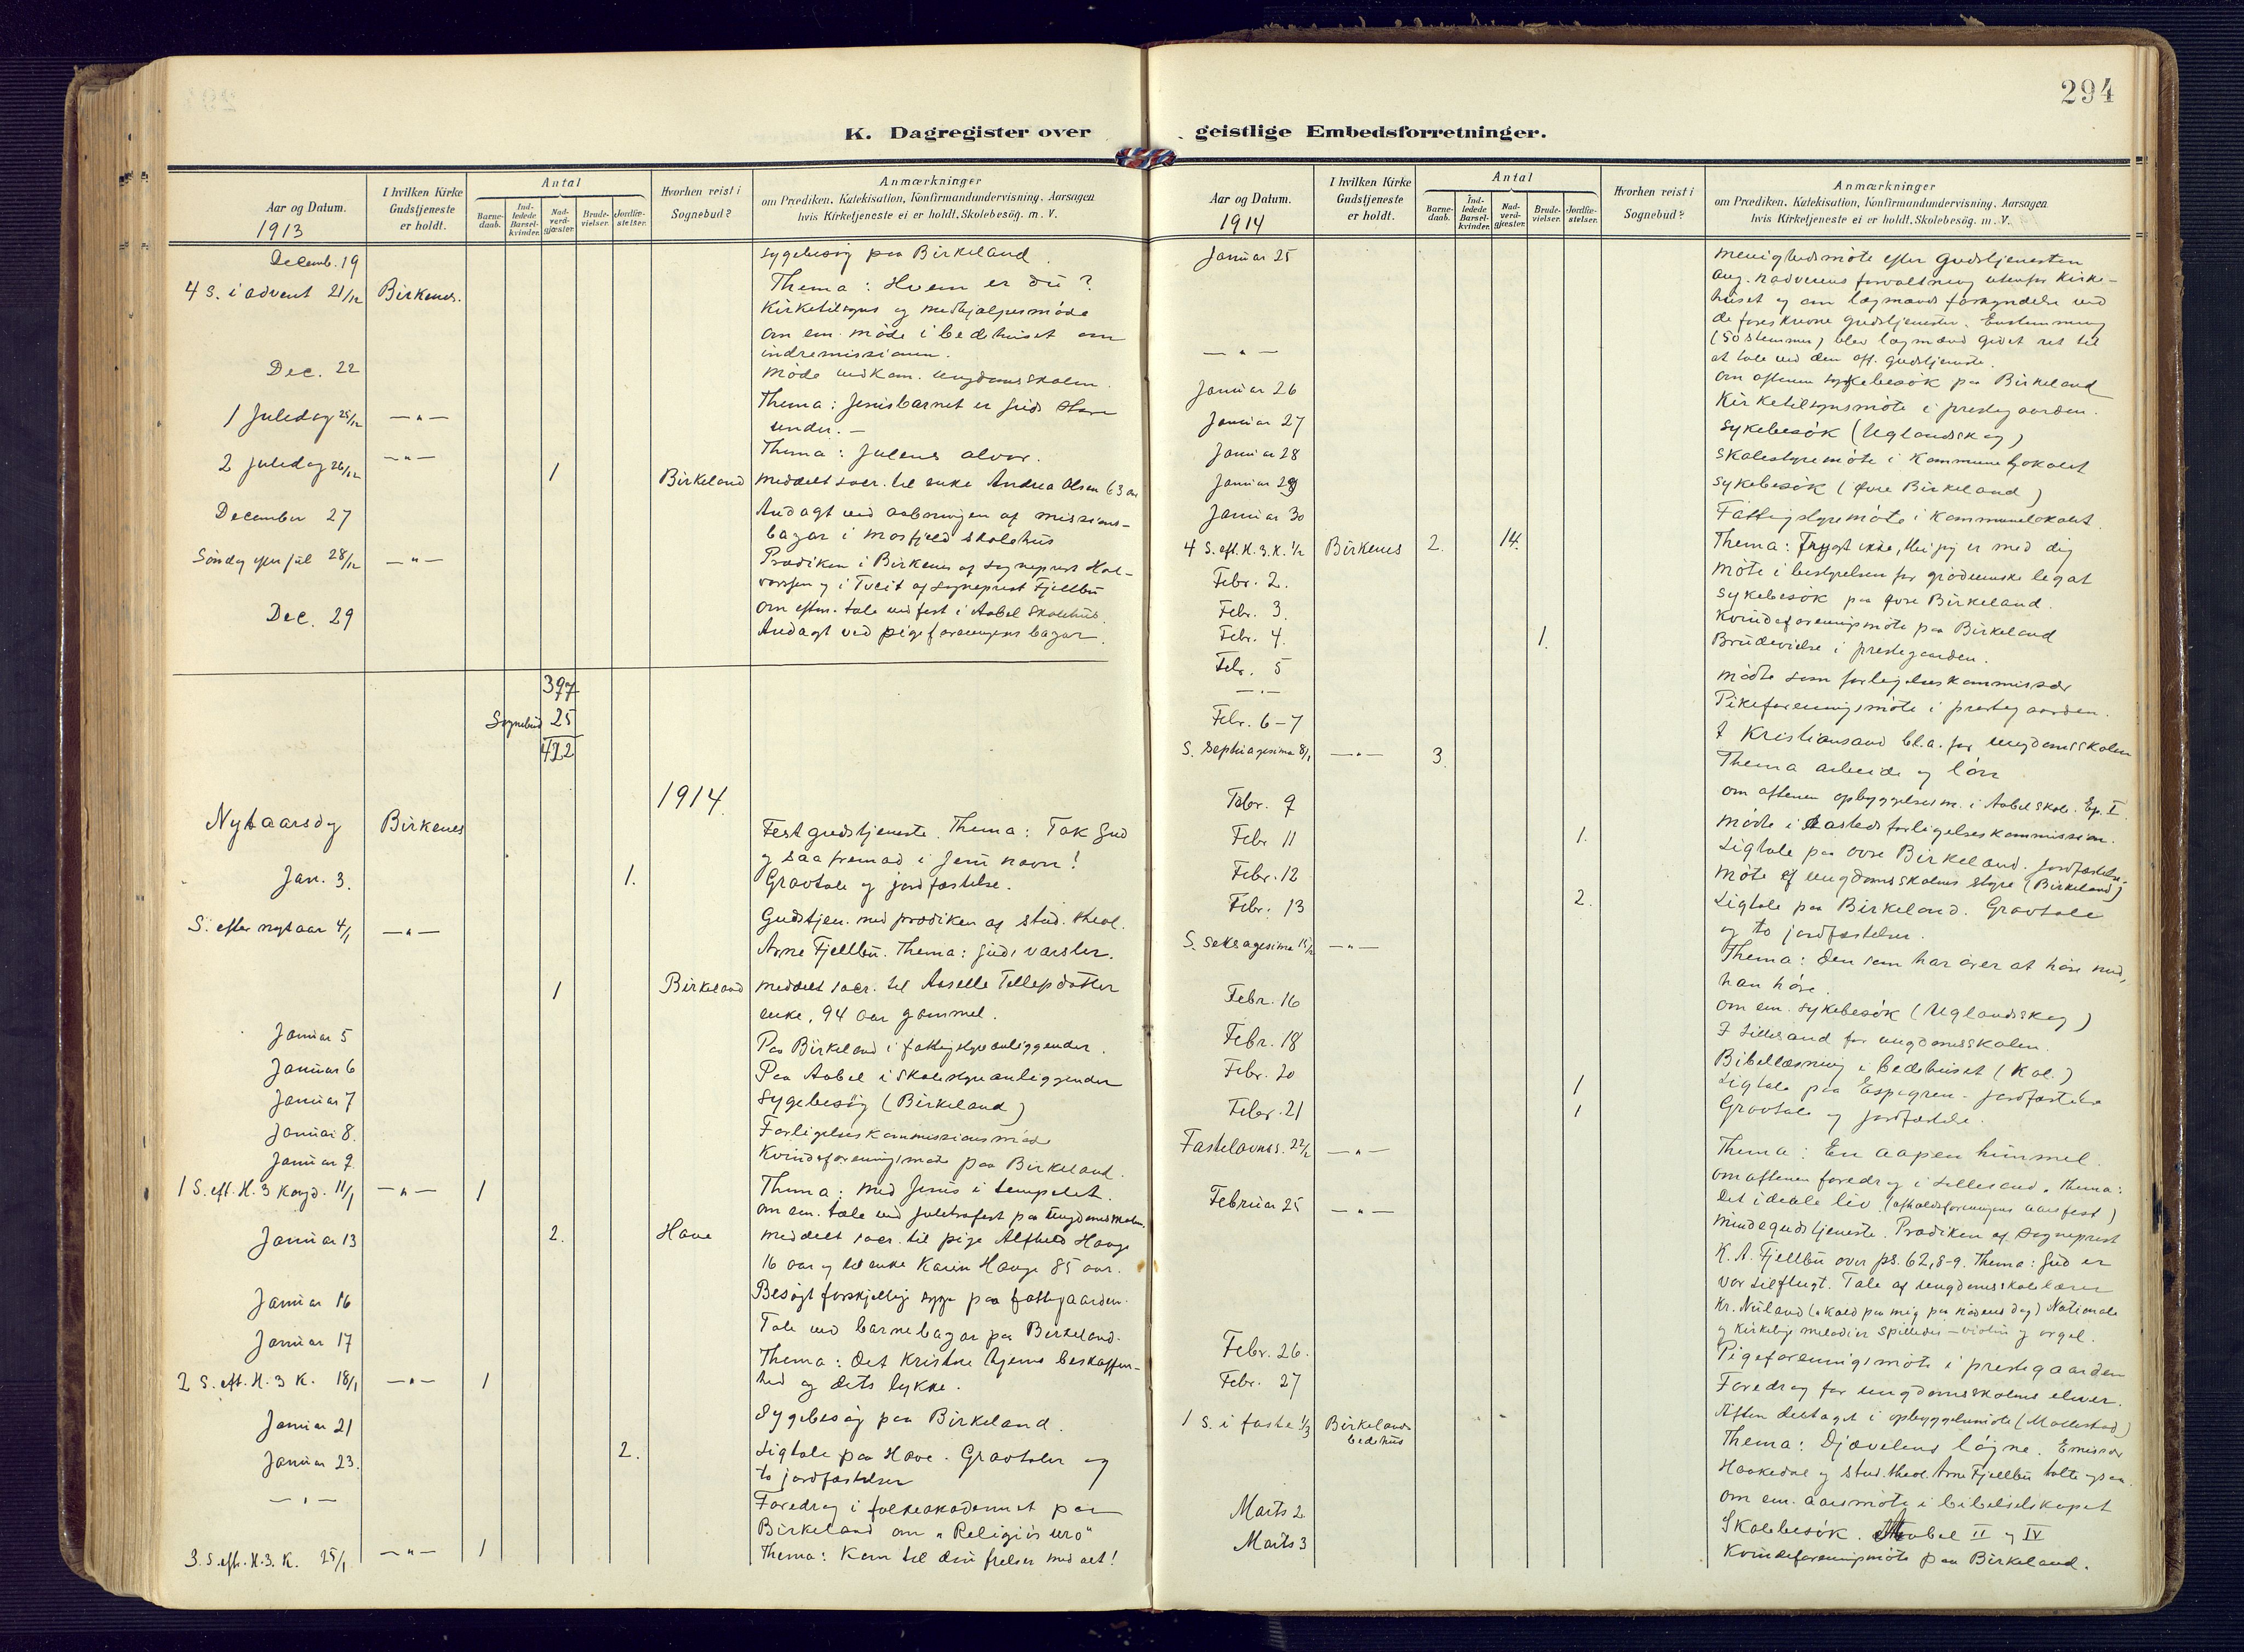 294
K. Dagregister over geistlige Embedsforretninger.
Aar og Datum.
1913
I hvilken Kirke
Gudstjeneste
er holdt.
Antal
Barne-
daab.
Ind-
ledede
Barsel-
kvinder.
Nad-
verd-
gjæster.
Brude-
vielser.
Jordfæ-
stelser.
Hvorhen reist i
Sognebud?
Anmærkninger
om Prædiken, Katekisation, Konfirmandundervisning, Aarsagen
hvis Kirketjeneste ei er holdt, Skolebesög. m. V.
Decemb. 19 sygebesøg paa Birkeland.
4 S. i advent 21/12 Birkenes. Thema: Hvem er du?
Kirketilsyns og medhjælpermøde
Om em. møde i bedehuset om
indremissionen.
Dec. 22 Møde vedkom. ungdomsskolen.
1 Juledag 25/12 —„— Thema: Jesusbarnet er Guds store
under. —
2 Juledag 26/12 —„— Thema: Julens alvor.
1 Birkeland meddelt sacr. til enke Andrea Olsen 63 aar
December 27 Andagt ved aabningen af missions-
bazar i Mosfjeld skolehus
Søndag efter jul 28/12 —„— Prædiken i Birkenes af sogneprest Hal-
vorsen og i Tveit af sogneprest Fjellbu
Om eftm. tale ved fest i Aabel skolehus.
Dec. 29 Andagt ved pigeforeningens bazar.
397
Sognebud 25
422
1914.
Nytaarsdag Birkenes Festgudstjeneste. Thema: Tak Gud
og saa fremad i Jesu navn!
Jan. 3. 1. Gravtale og jordfæstelse.
S. efter nytaar 4/1 —„— Gudstjen. med prædiken af stud. theol.
Arne Fjellbu. Thema: Guds varsler.
1 Birkeland meddelt sacr. til Aaselle Tellefsdatter
enke, 94 aar gammel.
Januar 5 Paa Birkeland i fattigstyreanliggender.
Januar 6 Paa Aabel i skolestyreanliggender
Januar 7 Sygebesøg (Birkeland)
Januar 8. Forligelseskommissionsmøde
Januar 9 Kvindeforeningsmøde paa Birkeland.
1 S. eft. H. 3 Kongd. 11/1 —„— 1 Thema: Med Jesus i templet.
Om em. tale ved juletræfest paa ungdomsskolen.
Januar 13 2. Hove meddelt sacr. til pige Alfhild Hauge
16 aar og til enke Karen Hauge 85 aar.
Januar 16 Besøgt forskjellige syge paa fattiggaarden.
Januar 17 Tale ved barnebazar paa Birkeland.
2 S. eft. H. 3 K. 18/1 —„— 1 Thema: Det kristne hjems beskaffen-
hed og dets lykke.
Januar 21 Sygebesøg paa Birkeland.
Januar 23. 2. Ligtale paa Hove. Gravtaler og
to jordfæstelser
—„— Foredrag i folkeakademiet paa
Birkeland om „Religiøs uro"
3. S. eftr. H. 3. K. 25/1 —„— 1 Thema: Kom til din frelser med alt!
Aar og Datum.
1914
I hvilken Kirke
Gudstjeneste
er holdt.
Antal
Barne-
daab.
Ind-
ledede
Barsel-
kvinder.
Nad-
verd-
gjæster.
Brude-
vielser.
Jordfæ-
stelser.
Hvorhen reist i
Sognebud?
Anmærkninger
om Prædiken, Katekisation, Konfirmandundervisning, Aarsagen
hvis Kirketjeneste ei er holdt, Skolebesög. m. V.
Januar 25 menighedsmøte efter Gudstjenesten
ang. nadverens forvaltning utenfor kirke-
huset og om lægmænds forkyndelse ved
de foreskrevne gudstjenester. Enstemmig
(50 stemmer) blev lægmænd givet ret til
at tale ved den off. gudstjeneste.
—„— Om aftenen sykebesøk paa Birkeland
Januar 26 Kirketilsynsmøte i prestegaarden.
Januar 27 Sykebesøk (Uglandskog)
Januar 28 Skolestyremøte i Kommunelokalet
Januar 29 Sykebesøk (øvre Birkeland)
Januar 30 Fattigstyremøte i Kommunelokalet.
4 S. eft. H. 3. K. 1/2 Birkenes 2. 14. Thema: Frygt ikke, thi jeg er med dig
Febr. 2. Møte i bestyrelsen for legat
Febr. 3. Sykebesøk paa øvre Birkeland.
Febr. 4. Kvindeforeningsmøte paa Birkeland
1. Brudevielse i prestegaarden.
Febr. 5 Mødte som forligelseskommissær
—„— Pikeforeningsmøte i prestegaarden.
Febr. 6–7 I Kristiansand bl.a. for ungdomsskolen
S. Septuagesima 8/1 —„— 3. Thema arbeide og løn
om aftenen opbyggelsesm. i Aabel skole. Ep. I
Febr. 9 Møte i forligelseskommission.
Febr 11 1. Ligtale paa øvre Birkeland. Jordfæstelse.
Febr. 12 Møte af ungdomsskolens styre (Birkeland)
Febr. 13 2. Ligtale paa Birkeland. Gravtale
og to jordfæstelser.
S. Seksagesima 15/2 —„— Thema: Den som har ører at høre med,
han høre.
Febr. 16 Om em. sykebesøk (Uglandskog)
Febr. 18 I Lillesand for ungdomsskolen.
Febr. 20 Bibellæsning i bedehuset (Kol.)
1 Ligtale paa Espegren. Jordfæstelse
Febr. 21 1 Gravtale og jordfæstelse.
Fastelavnss. 22/2 —„— Thema: En aapen himmel.
Om aftenen foredrag i Lillesand. Thema:
Det ideale liv. (afholdsforeningens aarsfest)
Februar 25 —„— Mindegudstjeneste. Prædiken af Sogneprest
K. A. Fjellbu over ps. 62,8-9. Thema: Gud er
vor tilflugt. Tale af ungdomsskolelærer
Kr. Nuland („kald paa mig paa nødens dag) Nationale
og kirkelige melodier spilledes – violin og orgel.
Febr. 26. Pigeforeningsmøte i prestegaarden
Febr. 27 Foredrag for ungdomsskolens elever.
Aften deltaget i opbyggelsesmøte (Mollestad)
1 S. i faste 1/3 Birkelands
bedehus Thema: Djævelens løgne. Emissær
Haakedal og stud. theol. Arne Fjellbu talte ogsaa.
Om em. aarsmøte i bibelselskapet
Marts 2 Skolebesøk. Aabel II og IV
Marts 3 Kvindeforeningsmøte paa Birkeland.